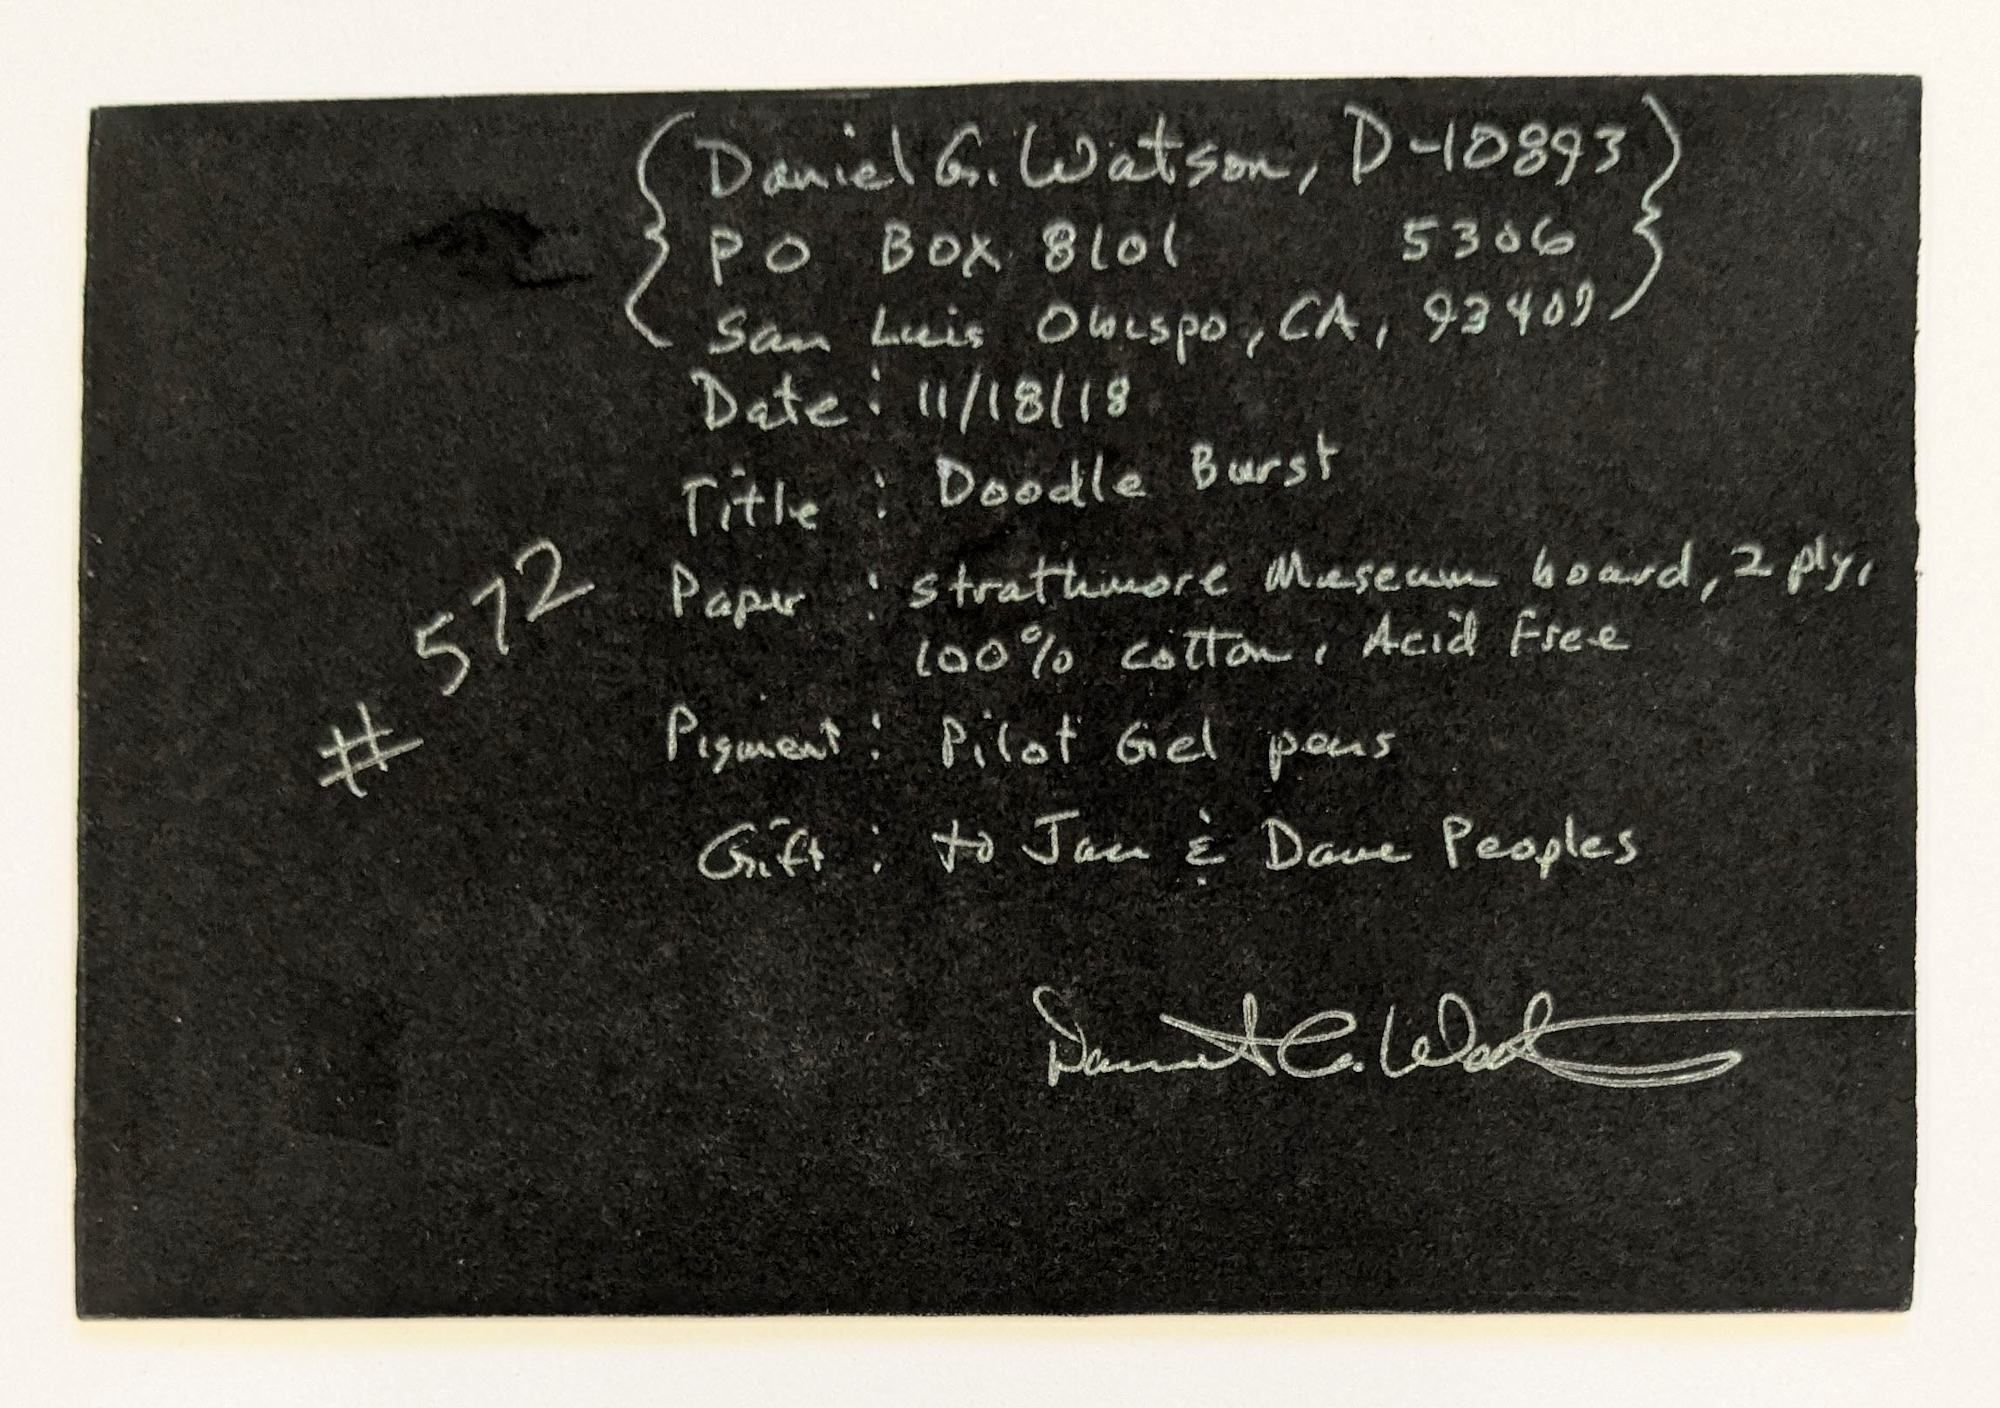 Daniel G. Watson, D-10893
PO BOX 8101 5306
San Luis Obispo, CA, 93409
Date: 11/18/18
Title: Doodle Burst
#572
Paper: Strathmore Museum board, 2 ply,
100% cotton, Acid Free
Pigment: Pilot Gel pens
Gift: to Jan & Dave Peoples
Daniel G. Wat